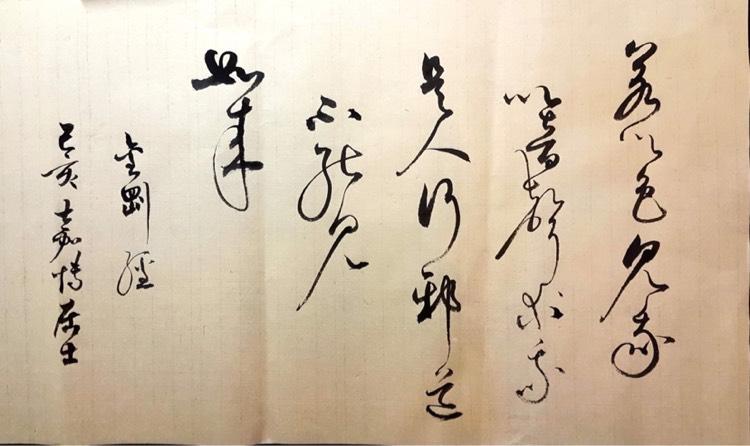 若以色見我
以音聲求我
是人行邪道
不能見
如来
金剛經
己亥嘉博居士